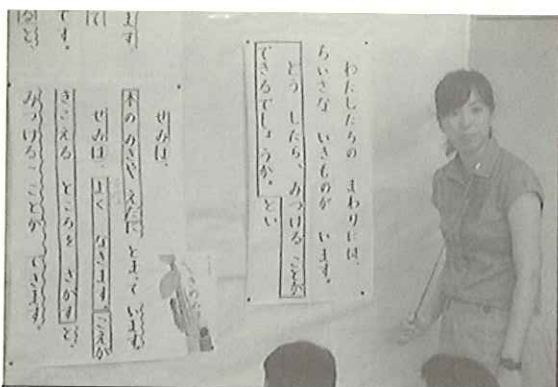 わたしたちの まわりには、
ちいさな いきものが います。
どう したら、みつける ことが
できるでしょうか。 とい
せみは、
木の みきや えだに とまって います。
せみは よく なきます。こえが
きこえる ところを さがすと、
みつける ことが できます。
ます。
て
です。